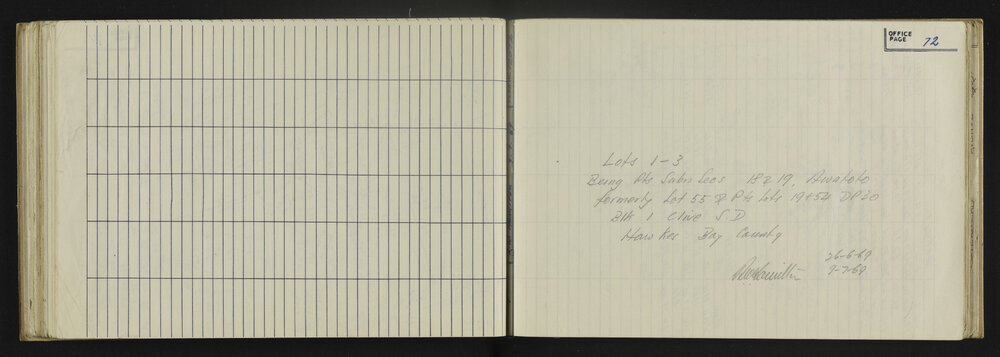 OFFICE
PAGE 72
Lots 1-3
Being Pts Subn Secs 18 & 19, Awatoto
formerly Lot 55 & Pts Lots 19 + 54 DP 20
Blk 1 Clive S D
Hawkes Bay County
26-6-69
9-7-69